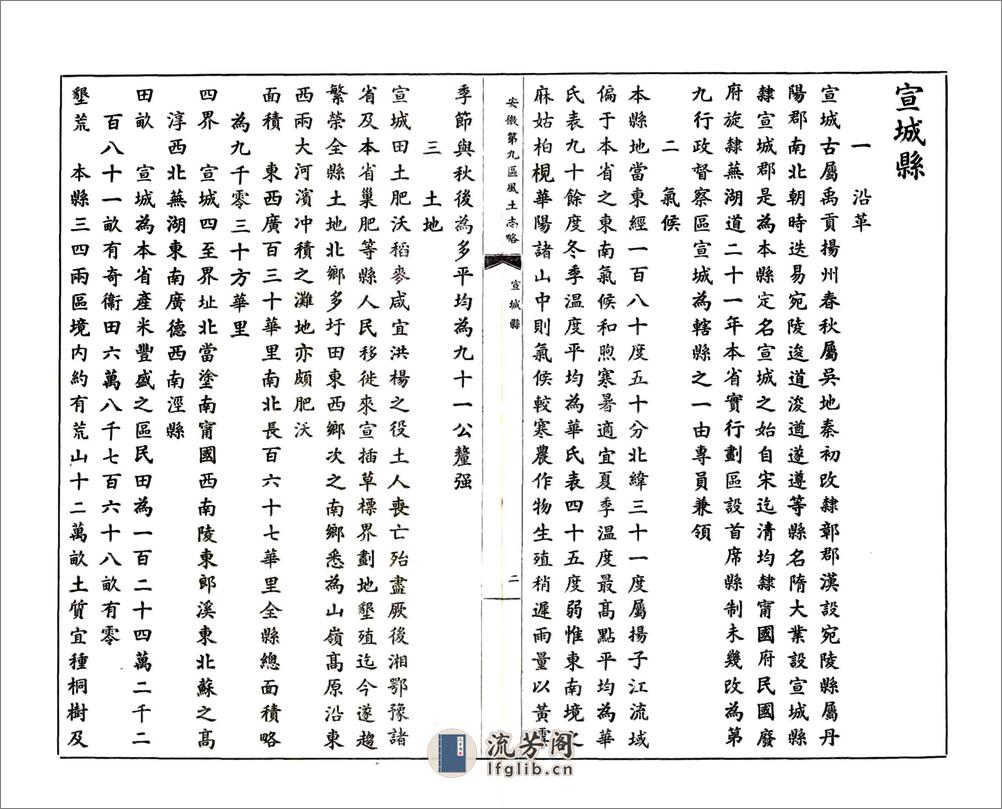 宣城縣
一　沿革
宣城古屬禹貢揚州春秋屬吳地秦初改隸鄣郡漢設宛陵縣屬丹
陽郡南北朝時迭易宛陵逡道浚道遂遵等縣名隋大業設宣城縣
隸宣城郡是為本縣定名宣城之始自宋迄清均隸甯國府民國廢
府旋隸蕪湖道二十一年本省實行劃區設首席縣制未幾改為第
九行政督察區宣城為轄縣之一由專員兼領
二　氣候
本縣地當東經一百八十度五十分北緯三十一度屬揚子江流域
偏于本省之東南氣候和煦寒暑適宜夏季溫度最高點平均為華
氏表九十餘度冬季溫度平均為華氏表四十五度弱惟東南境之
麻姑柏梘華陽諸山中則氣候較寒農作物生殖稍遲雨量以黃霉
安徽第九區風土志略
宣城縣
二
季節與秋後為多平均為九十一公釐强
三　土地
宣城田土肥沃稻麥咸宜洪楊之役土人喪亡殆盡厥後湘鄂豫諸
省及本省巢肥等縣人民移徙來宣插草標界劃地墾殖迄今遂趨
繁榮全縣土地北鄉多圩田東西鄉次之南鄉悉為山嶺高原沿東
西兩大河濱冲積之灘地亦頗肥沃
面積　東西廣百三十華里南北長百六十七華里全縣總面積略
為九千零三十方華里
四界　宣城四至界址北當塗南甯國西南陵東郎溪東北蘇之高
淳西北蕪湖東南廣德西南涇縣
田畝　宣城為本省產米豐盛之區民田為一百二十四萬二千二
百八十一畝有奇衞田六萬八千七百六十八畝有零
墾荒　本縣三四兩區境內約有荒山十二萬畝土質宜種桐樹及
流芳阁
lfglib.cn